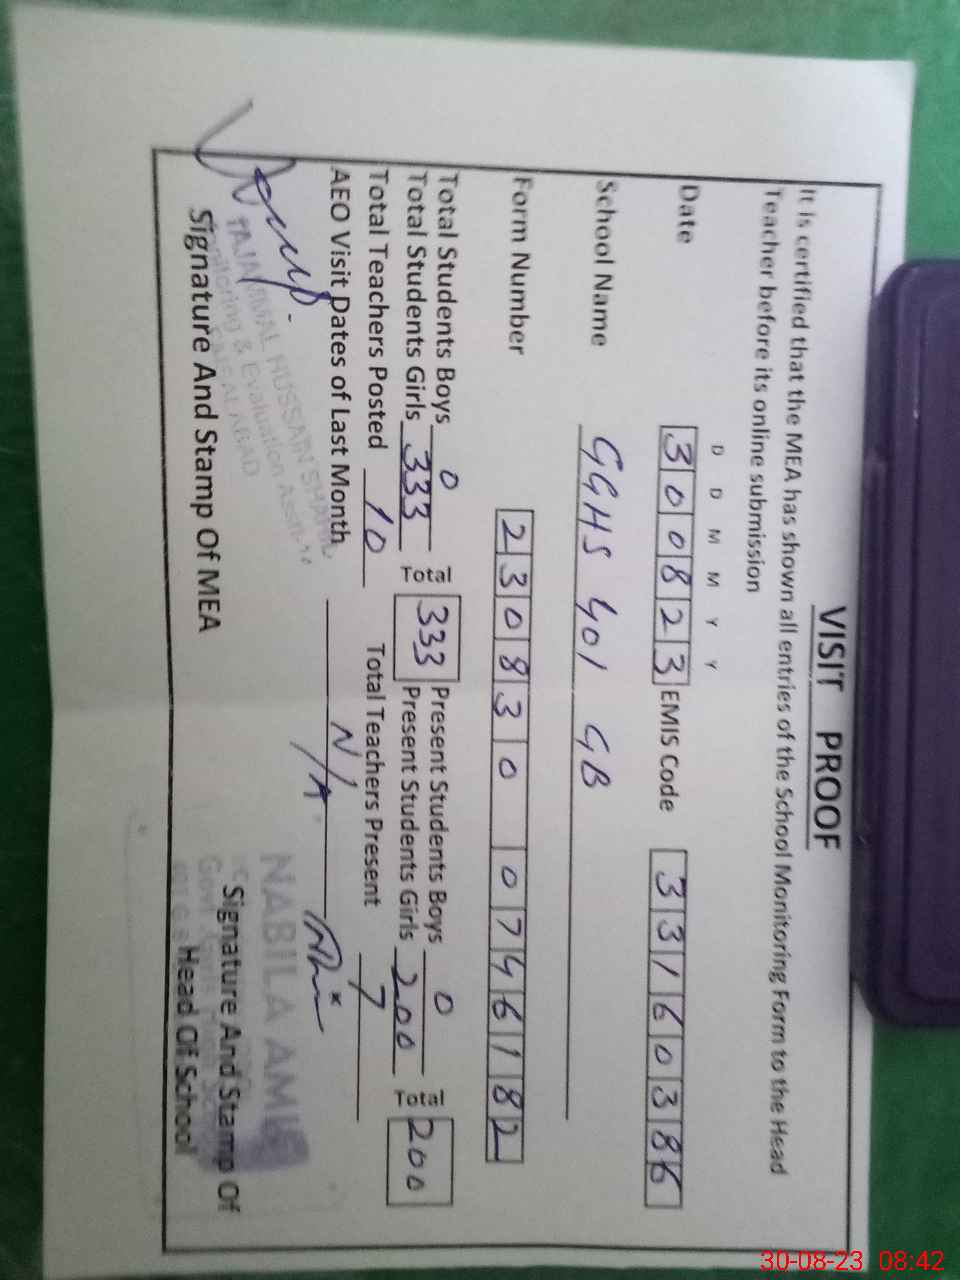 VISIT PROOF
It is certified that the MEA has shown all entries of the School Monitoring Form to the Head
Teacher before its online submission
D D M M Y Y
Date 300823 EMIS Code 33160386
School Name GGHS 401 GB
Form Number 230830 0746182
Total Students Boys 0 Present Students Boys 0
Total Students Girls 333 Total 333 Present Students Girls 200 Total 200
Total Teachers Posted 10 Total Teachers Present 7
AEO Visit Dates of Last Month N/A
TAJAMMAL HUSSAIN
Monitoring & Evaluation
FAISALABAD
NABILA
Signature And Stamp Of MEA
Signature And Stamp Of
Head Of School
30-08-23 08:42